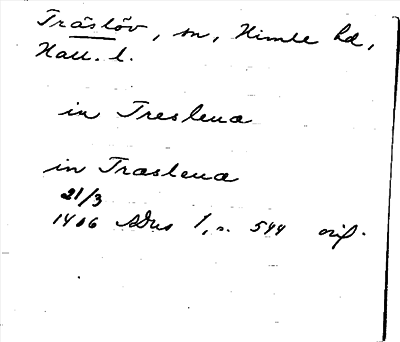 Träslöv, sn, Himle hd,
Hall. l.
in Tresleua
in Trasleua
21/3
1406 SDns 1, s. 544 orig.